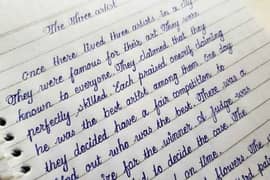 The three artist
Once there lived three artists in a city
They were famous for their art. They were
known to everyone. They claimed that they
perfectly skilled. Each praised openly claiming
he was the best artist among them. One day
they decided have a fair competition to
out who was the best. There was a
for the winner. A judge was
to decide the case. The
on time.
flowers. The